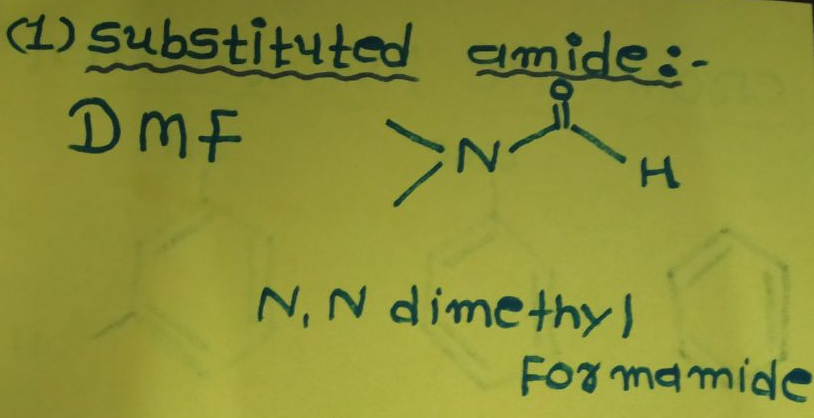 (1) substituted amide:-
DMF
O
N
H
N, N dimethyl
Formamide